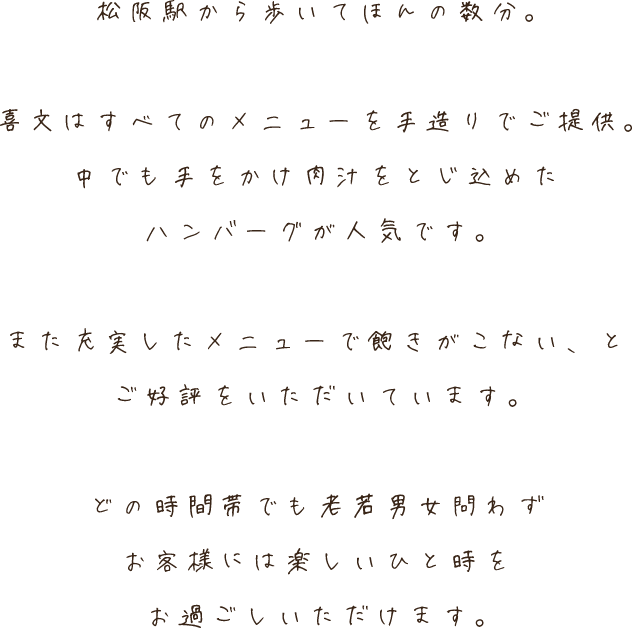 松阪駅から歩いてほんの数分。
喜文はすべてのメニューを手造りでご提供。
中でも手をかけ肉汁をとじ込めた
ハンバーグが人気です。
また充実したメニューで飽きがこない、と
ご好評をいただいています。
どの時間帯でも老若男女問わず
お客様には楽しいひと時を
お過ごしいただけます。